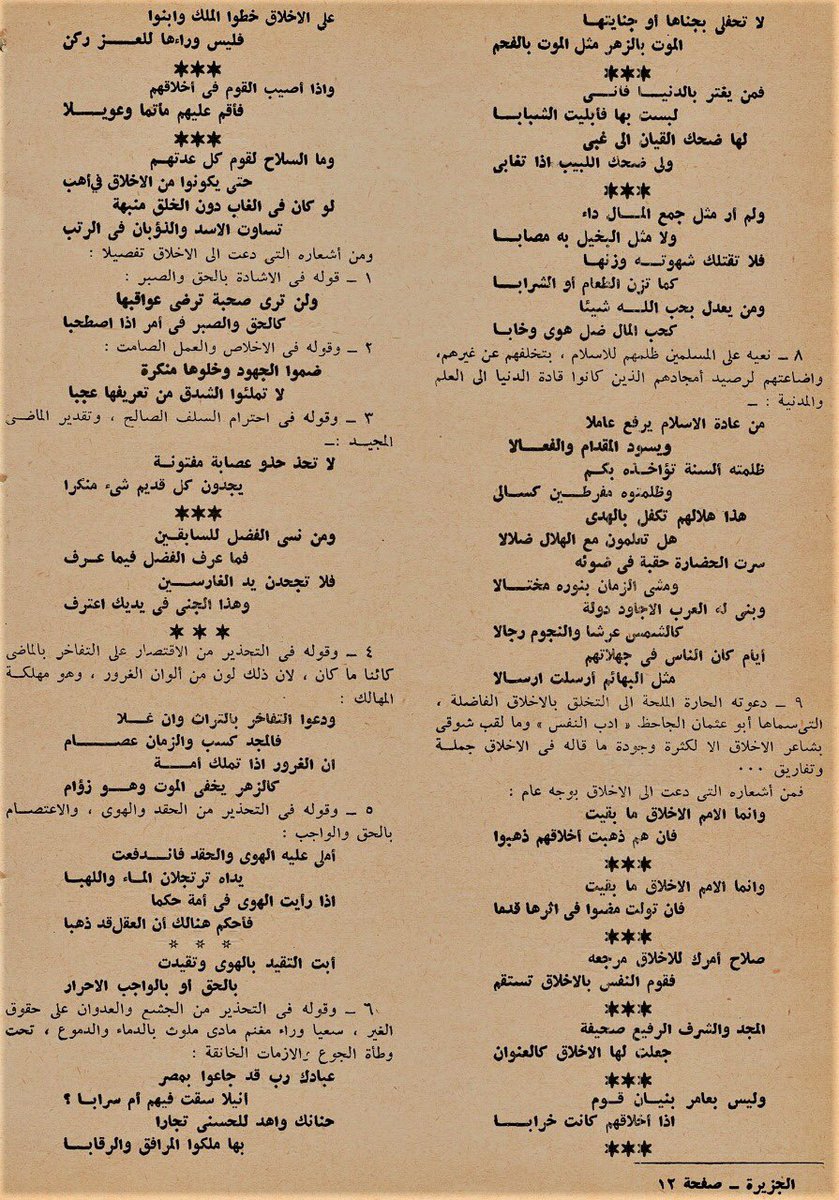 لا تحفلى بجناها أو جنايتهـا
الموت بالزهر مثل الموت بالفحم
***
فمن يفتر بالدنيـــا فانــى
لبست بها فأبليت الشبابــا
لها ضحك القيان الى غبى
ولى ضحك اللبيب اذا تغابى
***
ولم أر مثل جمع المـــال داء
ولا مثل البخيل به مصابــا
فلا تقتلك شهوتــه وزنهـا
كما تزن الطعام أو الشرابــا
ومن يعدل بحب اللــه شيئا
كحب المال ضل هوى وخابا
٨ ــ نعيه على المسلمين ظلمهم للاسلام ، بتخلفهم عن غيرهم،
واضاعتهم لرصيد أمجادهم الذين كانوا قادة الدنيا الى العلم
والمدنية : ــ
من عادة الاسلام يرفع عاملا
ويسود المقدام والفعــالا
ظلمته ألسنة تؤاخذه بكـم
وظلمتوه مفرطــين كسـالى
هذا هلالهم تكفل بالهدى
هل تعلمون مع الهلال ضلالا
سرت الحضارة حقبة فى ضوئه
ومشى الزمان بنوره مختــالا
وبنى له العرب الاجاود دولة
كالشمس عرشا والنجوم رجالا
أيام كان الناس فى جهلاتهم
مثل البهائم أرسلت ارسـالا
٩ ــ دعوته الحارة الملحة الى التخلق بالاخلاق الفاضلة ،
التى سماها أبو عثمان الجاحظ « ادب النفس » وما لقب شوقى
بشاعر الاخلاق الا لكثرة وجودة ما قاله فى الاخلاق جملـة
وتفاريق ٠٠٠
فمن أشعاره التى دعت الى الاخلاق بوجه عام :
وانما الامم الاخلاق ما بقيت
فان هم ذهبت أخلاقهم ذهبوا
***
وانما الامم الاخلاق ما بقيت
فان تولت مضوا فى اثرها قدما
***
صلاح أمرك للاخلاق مرجعه
فقوم النفس بالاخلاق تستقم
***
المجد والشرف الرفيع صحيفة
جعلت لها الاخلاق كالعنوان
***
وليس بعامر بنيـان قـوم
اذا أخلاقهم كانت خرابــا
***
الجزيرة ــ صفحة ١٢
على الاخلاق خطوا الملك وابنوا
فليس وراءها للعـــز ركن
***
واذا أصيب القوم فى أخلاقهم
فأقم عليهم مأتما وعويـــلا
***
وما السلاح لقوم كل عدتهـم
حتى يكونوا من الاخلاق فى أهب
لو كان فى الغاب دون الخلق منبهة
تساوت الاسد والذؤبان فى الرتب
ومن أشعاره التى دعت الى الاخلاق تفصيلا :
١ ــ قوله فى الاشادة بالحق والصبر :
ولن ترى صحبة ترضى عواقبها
كالحق والصبر فى أمر اذا اصطحبا
٢ ــ وقوله فى الاخلاص والعمل الصامت :
ضموا الجهود وخلوها منكرة
لا تملئوا الشدق من تعريفها عجبا
٣ ــ وقوله فى احترام السلف الصالح ، وتقدير الماضى
المجيــد :ــ
لا تحذ حذو عصابة مفتونـة
يجدون كل قديم شىء منكرا
***
ومن نسى الفضل للسابقـين
فما عرف الفضل فيما عـرف
فلا تجحدن يد الغارســين
وهذا الجنى فى يديك اعترف
* * *
٤ ــ وقوله فى التحذير من الاقتصار على التفاخر بالماضى
كائنا ما كان ، لان ذلك لون من ألوان الغرور ، وهو مهلكة
المهالك :
ودعوا التفاخر بالتراث وان غـلا
فالمجد كسب والزمان عصــام
ان الغرور اذا تملك أمــة
كالزهر يخفى الموت وهـو زؤام
٥ ــ وقوله فى التحذير من الحقد والهوى ، والاعتصـام
بالحق والواجب :
أملى عليه الهوى والحقد فانـدفعت
يداه ترتجلان المـاء واللهبـا
اذا رأيت الهوى فى أمة حكما
فأحكم هنالك أن العقل قد ذهبا
* * *
أبت التقيد بالهوى وتقيدت
بالحق أو بالواجب الاحرار
٦ ــ وقوله فى التحذير من الجشع والعدوان على حقوق
الغير ، سعيا وراء مغنم مادى ملوث بالدماء والدموع ، تحت
وطأة الجوع والازمات الخانقة :
عبادك رب قد جاعوا بمصر
أنيلا سقت فيهم أم سرابـا ؟
حنانك واهد للحسنى تجارا
بها ملكوا المرافق والرقابـا